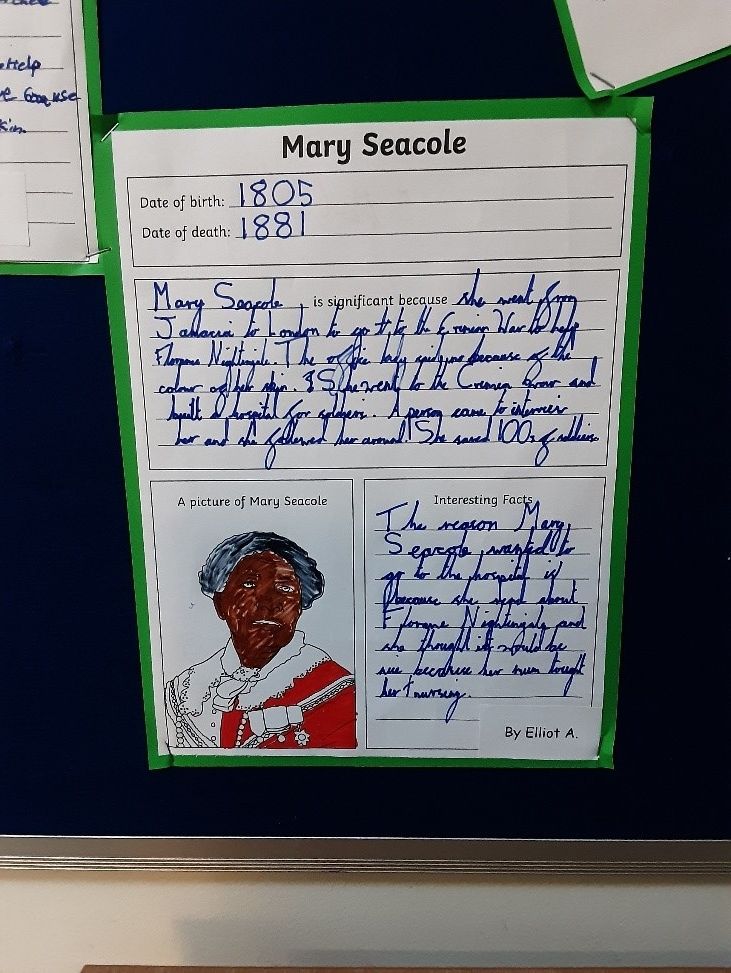 Help
use
Mary Seacole
Date of birth: 1805
Date of death: 1881
Mary Seacole, is significant because she went from
Jamacia to London to go to the Crimian War to help
Florence Nightingale. The office lady because of the
colour of her skin. She went to the Crimian and
built a hospital for soldiers. A person came to interveir
her and she followed her around. She saved 100s of soldiers.
A picture of Mary Seacole
Interesting Facts
The reason Mary
Seacole wanted to
go to the hospital is
because she read about
Florence Nightingale and
she thought it would be
nice because her mum tought
her nursing.
By Elliot A.